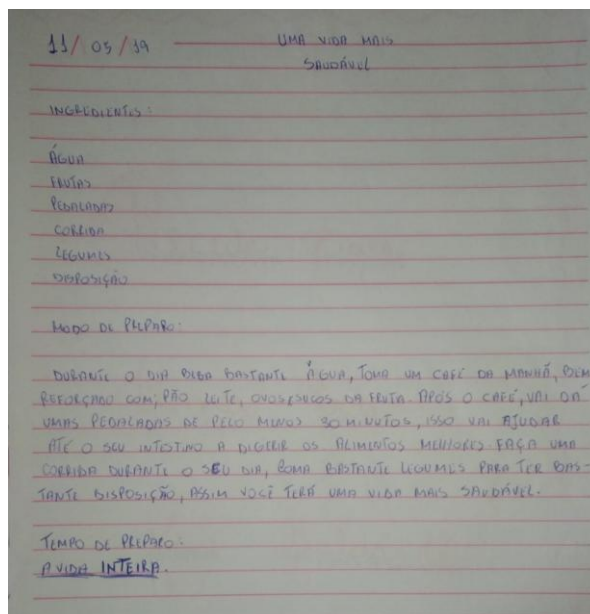 11/05/19 UMA VIDA MAIS
SAUDÁVEL
INGREDIENTES:
ÁGUA
FRUTAS
PEDALADAS
CORRIDA
LEGUMES
DISPOSIÇÃO
MODO DE PREPARO:
DURANTE O DIA BEBA BASTANTE ÁGUA, TOMA UM CAFÉ DA MANHÃ, BEM
REFORÇADO COM, PÃO LEITE, OVOS, SUCOS DA FRUTA. APÓS O CAFÉ, VAI DÁ
UMAS PEDALADAS DE PELO MENOS 30 MINUTOS, ISSO VAI AJUDAR
ATÉ O SEU INTESTINO A DIGERIR OS ALIMENTOS MELHORES FAÇA UMA
CORRIDA DURANTE O SEU DIA, COMA BASTANTE LEGUMES PARA TER BAS-
TANTE DISPOSIÇÃO, ASSIM VOCÊ TERÁ UMA VIDA MAIS SAUDÁVEL.
TEMPO DE PREPARO:
A VIDA INTEIRA.